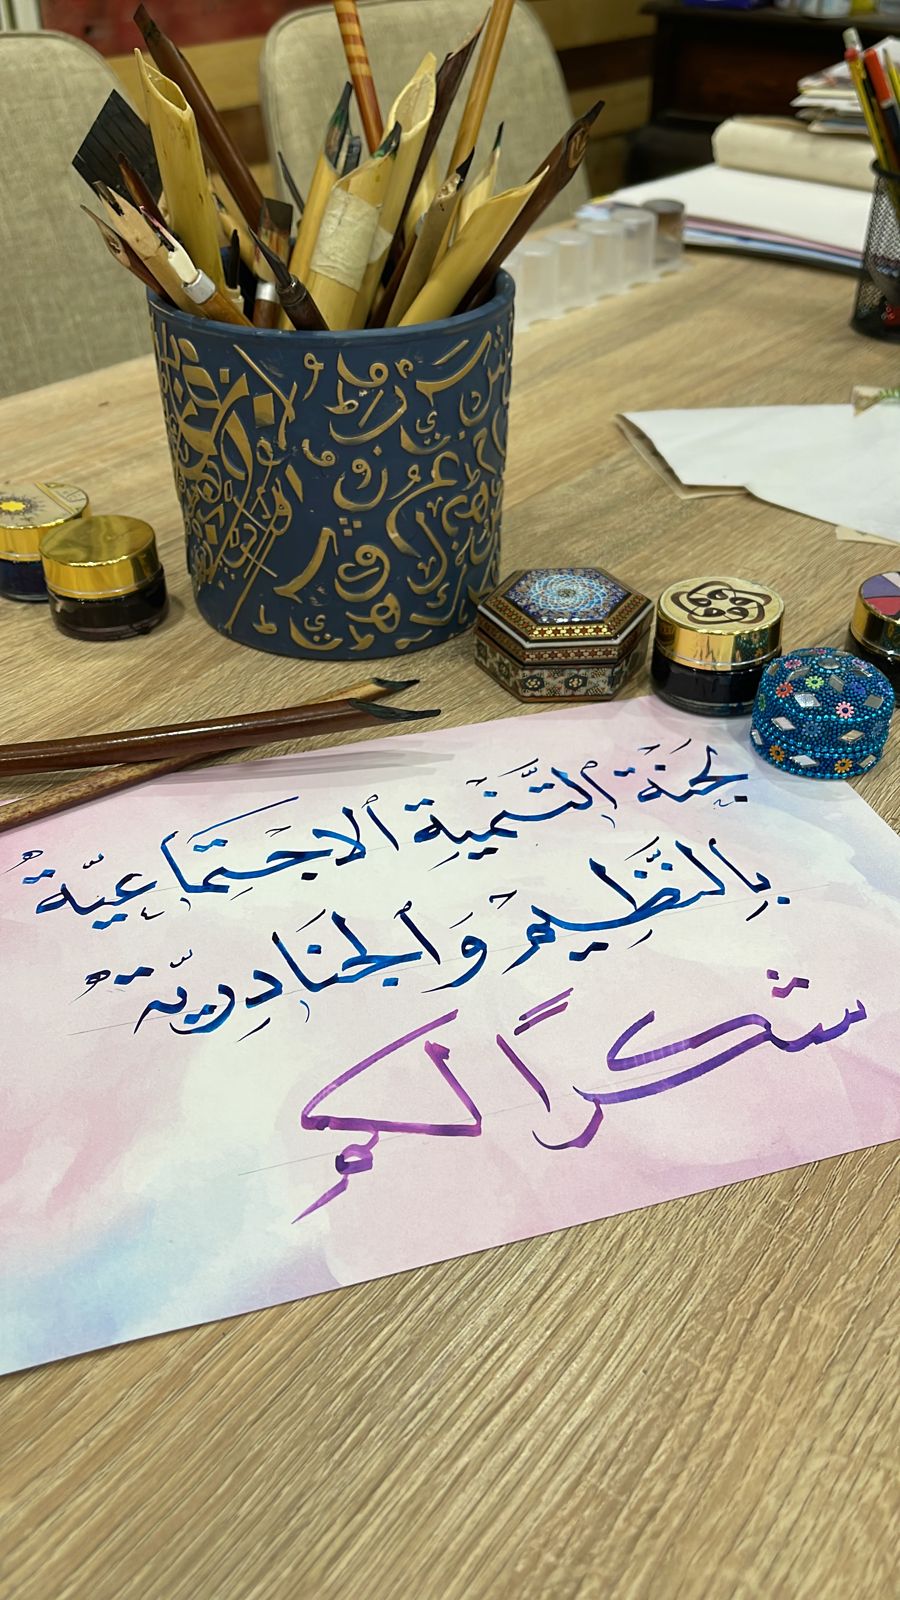 لجنَة التَّنميِة الاجتَماعيّة
بِالنَّظِيم وَالجنَادِريّة
شكراً لكم